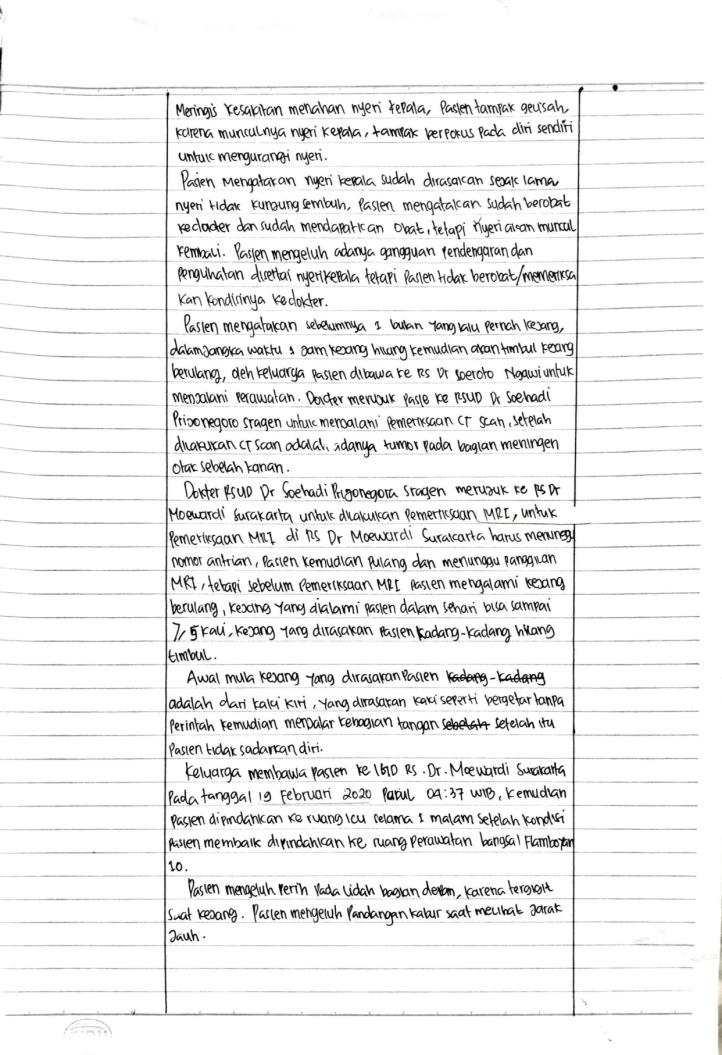 Meringis kesakitan menahan nyeri kepala, Pasien tampak gelisah,
karena munculnya nyeri kepala, tampak berpokus pada diri sendiri
untuk mengurangi nyeri.
Pasien Mengatakan nyeri kepala sudah dirasakan sejak lama
nyeri tidak kunjung sembuh, Pasien mengatakan sudah berobat
kedokter dan sudah mendapatkan obat, tetapi nyeri akan muncul
kembali. Pasien mengeluh adanya gangguan Pendengaran dan
Penglihatan disertai nyeri kepala tetapi Pasien tidak berobat/memeriksa
kan kondisinya kedokter.
Pasien mengatakan sebelumnya 1 bulan yang lalu Pernah kejang,
dalam jangka waktu 1 jam kejang hilang kemudian akan timbul kejang
berulang, oleh keluarga Pasien dibawa ke RS Dr Soeroto Ngawi untuk
menjalani perawatan. Dokter merujuk ke RSUD Dr Soehadi
Prijonegoro Sragen untuk menjalani Pemeriksaan CT scan, setelah
dilakukan CT scan adanya tumor pada bagian meningen
otak sebelah kanan.
Dokter RSUD Dr Soehadi Prijonegoro Sragen merujuk ke RS Dr
Moewardi Surakarta untuk dilakukan Pemeriksaan MRI, untuk
Pemeriksaan MRI di RS Dr Moewardi Surakarta harus menunggu
nomor antrian, Pasien kemudian Pulang dan menunggu panggilan
MRI, tetapi sebelum Pemeriksaan MRI Pasien mengalami kejang
berulang, kejang yang dialami pasien dalam sehari bisa sampai
7,5 kali, kejang yang dirasakan Pasien kadang-kadang hilang
timbul.
Awal mula kejang yang dirasakan Pasien kadang-kadang
adalah dari kaki kiri, yang dirasakan kaki seperti bergetar tanpa
Perintah kemudian menjalar kebagian tangan sebelah setelah itu
Pasien tidak sadarkan diri.
Keluarga membawa pasien ke IGD RS. Dr. Moewardi Surakarta
Pada tanggal 19 Februari 2020 Pukul 04:37 WIB, kemudian
Pasien dipindahkan ke ruang ICU selama 1 malam setelah kondisi
Pasien membaik dipindahkan ke ruang Perawatan bangsal Flamboyan
10.
Pasien mengeluh Perih Pada lidah bagian depan, karena tergigit
saat kejang. Pasien mengeluh Pandangan kabur saat melihat Jarak
Jauh.